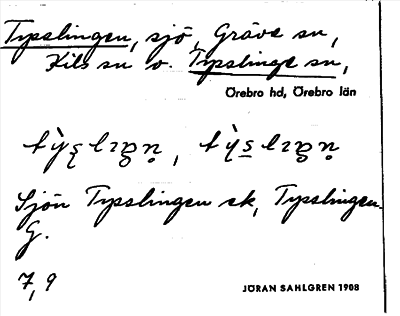 Tysslingen, sjö, Gräve sn,
Kils sn o. Tysslinge sn,
Örebro hd, Örebro län
Sjön Tysslingen ek, Tysslingen.
G.
7, 9
JÖRAN SAHLGREN 1908